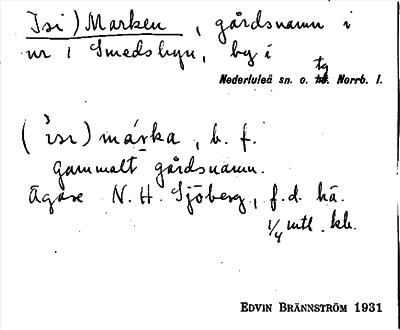 Isi) Marken, gårdsnamn i
nr 1 Smedsbyn, by i
tg
Nederluleå sn. o. hd. Norrb. l.
(ìsi) márka, b. f.
gammalt gårdsnamn.
Ägare N. H. Sjöberg, f.d. hä.
1/4 mtl. kh.
EDVIN BRÄNNSTRÖM 1931